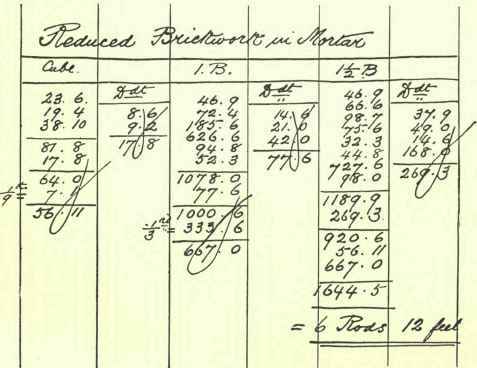 Reduced Brickwork in Mortar
Cube.
23.6.
19.4
38.10
81.8
17.8
64.0
1/9 = 7.1
56.11
Ddt
8.6
9.2
17.8
1.B.
46.9
72.4
185.6
626.6
94.8
52.3
1078.0
77.6
1000.6
-1/3rd = 333.6
667.0
Ddt
14.6
21.0
42.0
77.6
1½B
46.9
66.6
98.7
75.6
32.3
44.8
727.6
98.0
1189.9
269.3
920.6
56.11
667.0
1644.5
Ddt
37.9
49.0
14.6
168.0
269.3
= 6 Rods 12 feet